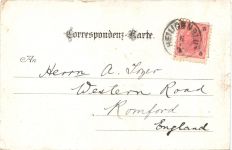 Correspondenz-Karte.
An
Herrn A.
Western Road
Romford
England